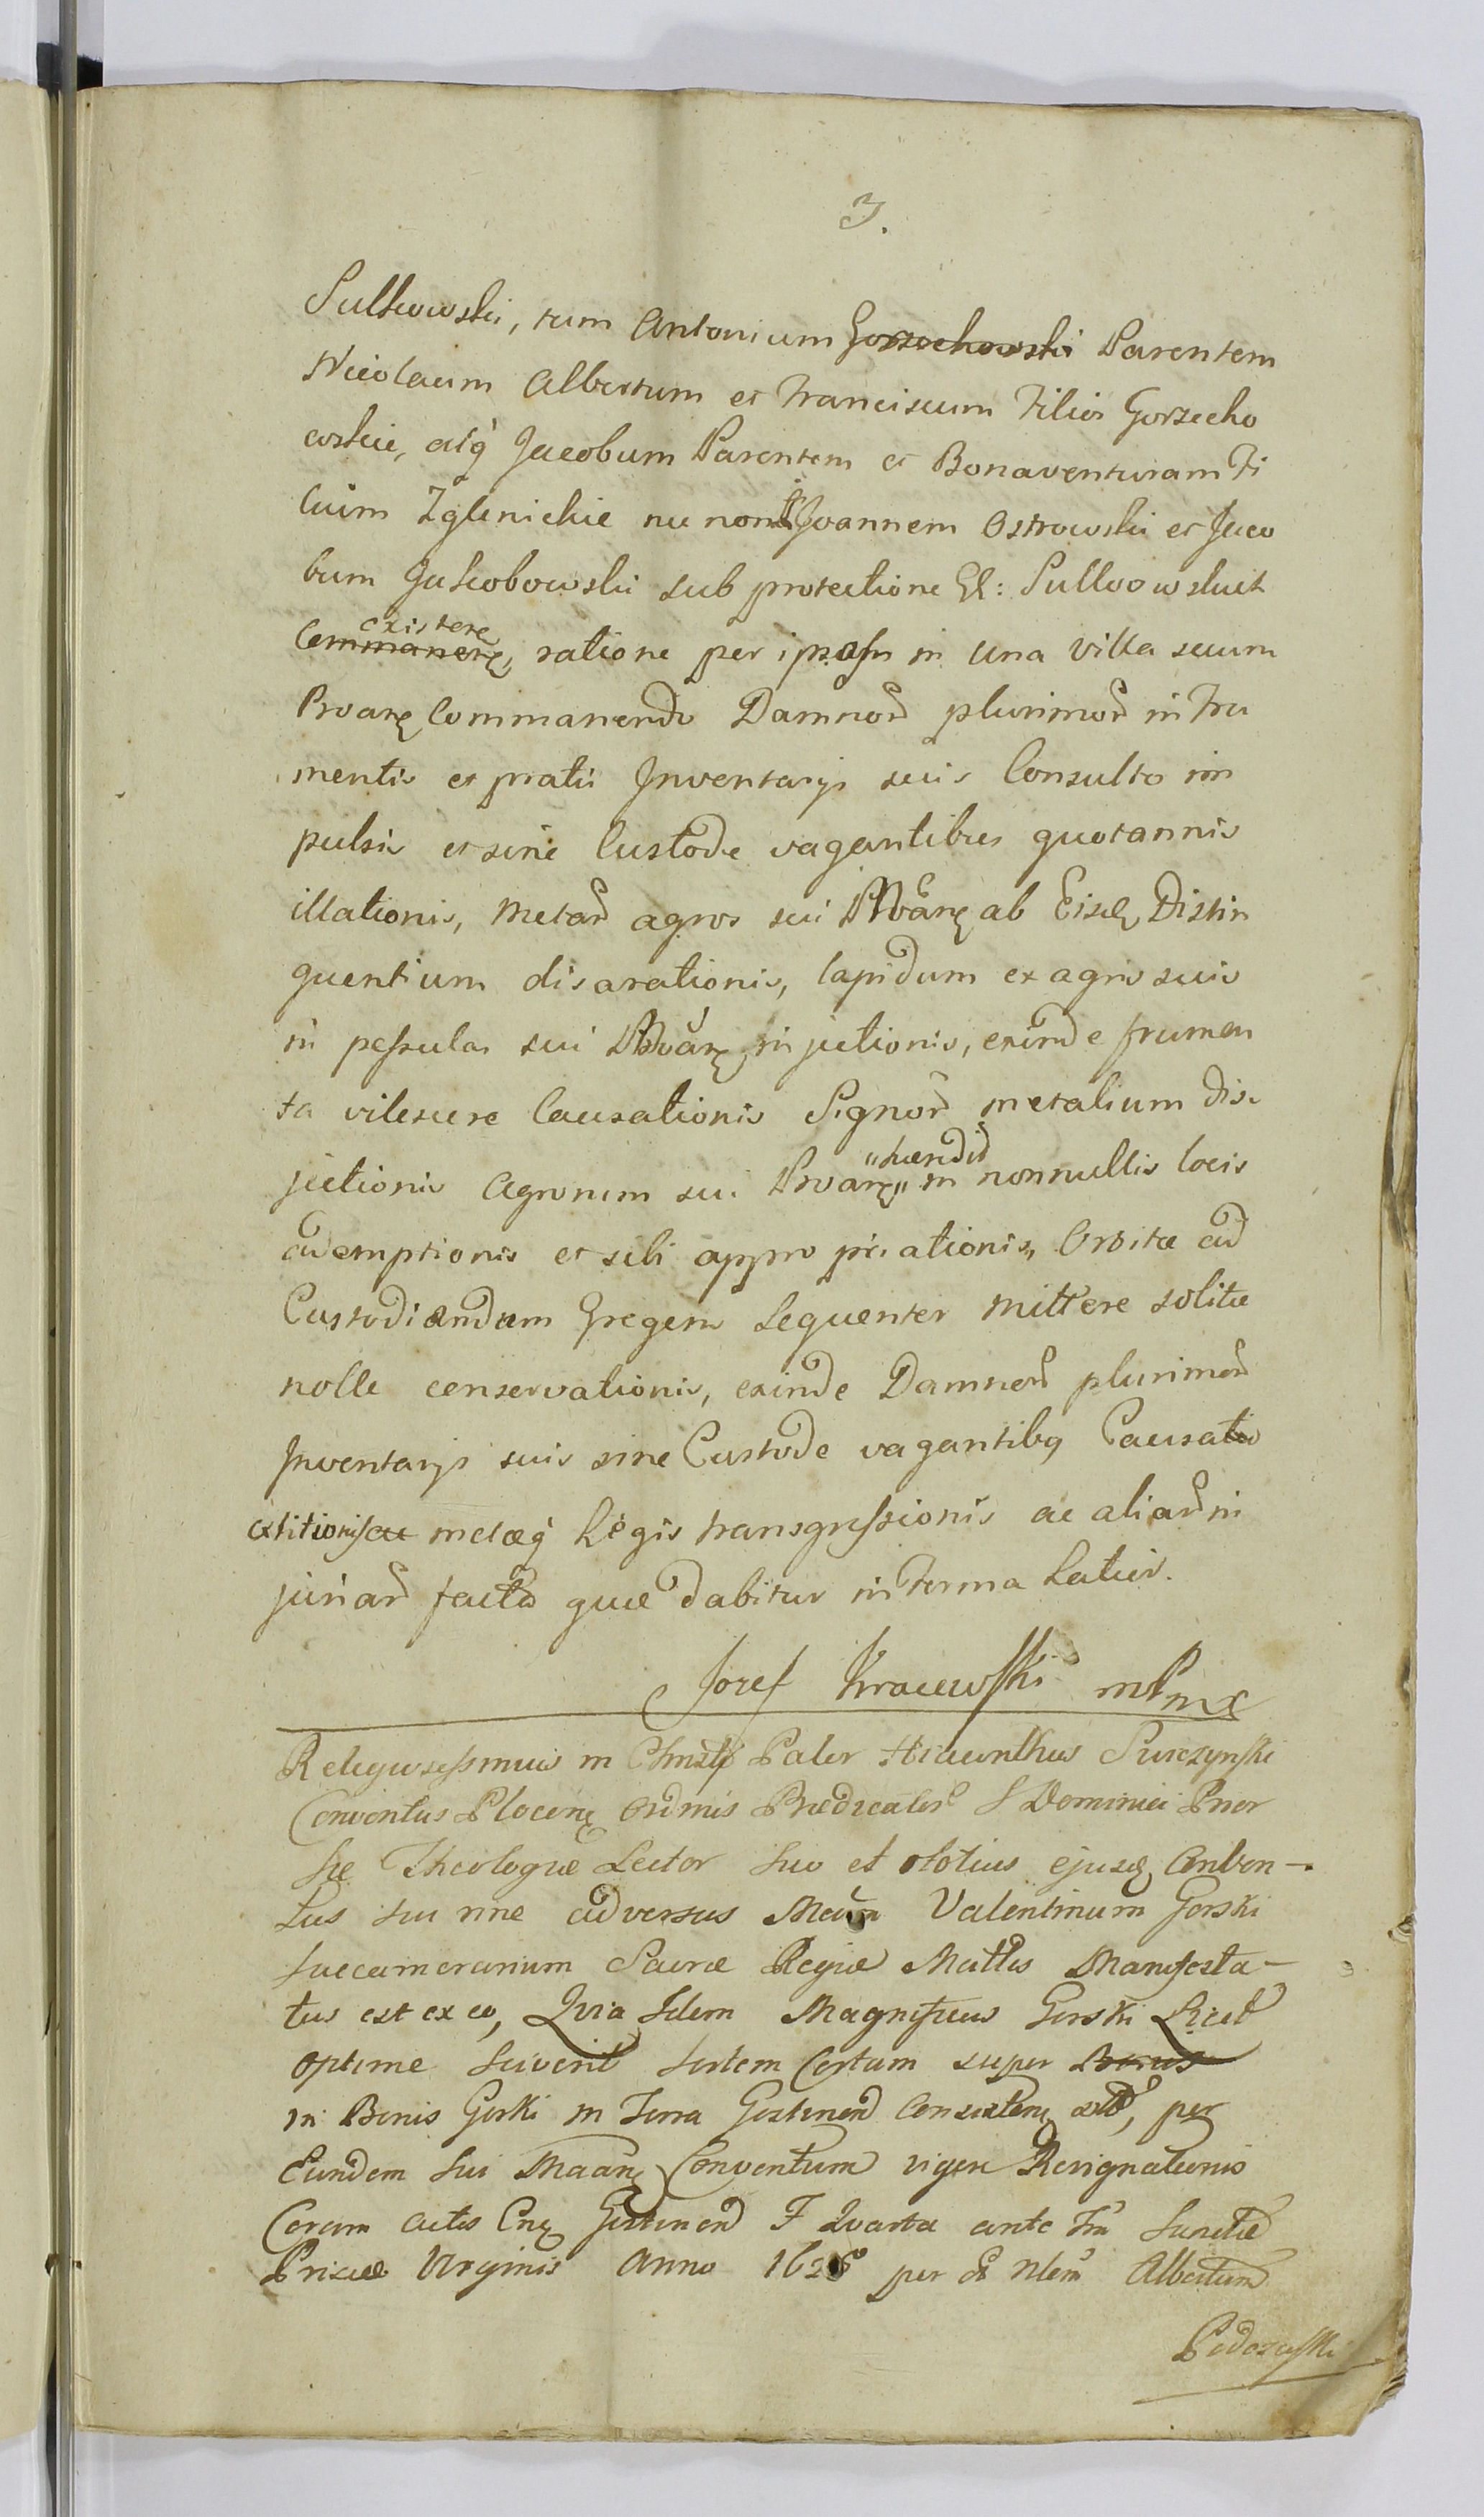 3.
Sulkowski, tum Antonium Gorzechowski Parentem
Nicolaum Albertum et Franciscum Filios Gorzecho
wskie, atq Jacobum Parentem et Bonaventuram Fi
lium Zglenickie nec non Joannem Ostrowski et Jaco
bum Jakobowski sub protectione Gl: Sulkowskich
existere
Commanere, ratione per ipsos in una villa secum
Proare Commanendo Damnor plurimor in Fru
mentis et pratis Inventarys suis Consulto im
pulsis et sine Custode vagantibus quotannis
illationis, Metar agros sui ab Eisd Distin
guentium disarationis, lapidum ex agris suis
in pessulas sui injectionis, exinde frumen
ta vilescere Causationis Signor metalium dis
"haered
jectionis Agrorum sui Proar" in nonnullis locis
ademptionis et sibi appropriationis, Orbitae ad
Custodiendum Gregem Sequenter mittere solitae
nolle conservationis, exinde Damnor plurimor
Inventarys suis sine Custode vagantibq Causat
metaeq Legis transgressionis ac aliar in
juriar facta quae dabitur in Forma Latius.
Jozef Kraiewski mpmx
Religiosissimus in Christo Pater Hiacinthus Surczynski
Conventus Plocen Ordinis Praedicator S Dominici Prior
Sae Theologiae Lector suo et totius ejusd Conven-
tus sui nne adversus Valentinum Gorski
Succamerarium Sacrae Regiae Mattis Manifesta-
tus est ex eo, Quia Idem Magnificus Gorski Licet
optime sciverit sortem Certam super
in Bonis Gorski in Terra Gostinen Consisten per
Eundem sui Conventum vigore Resignationis
Coram actis Gostinen F Quarta ante Sanctae
Priscae Virginis Anno 162 per Albertum
Podoski